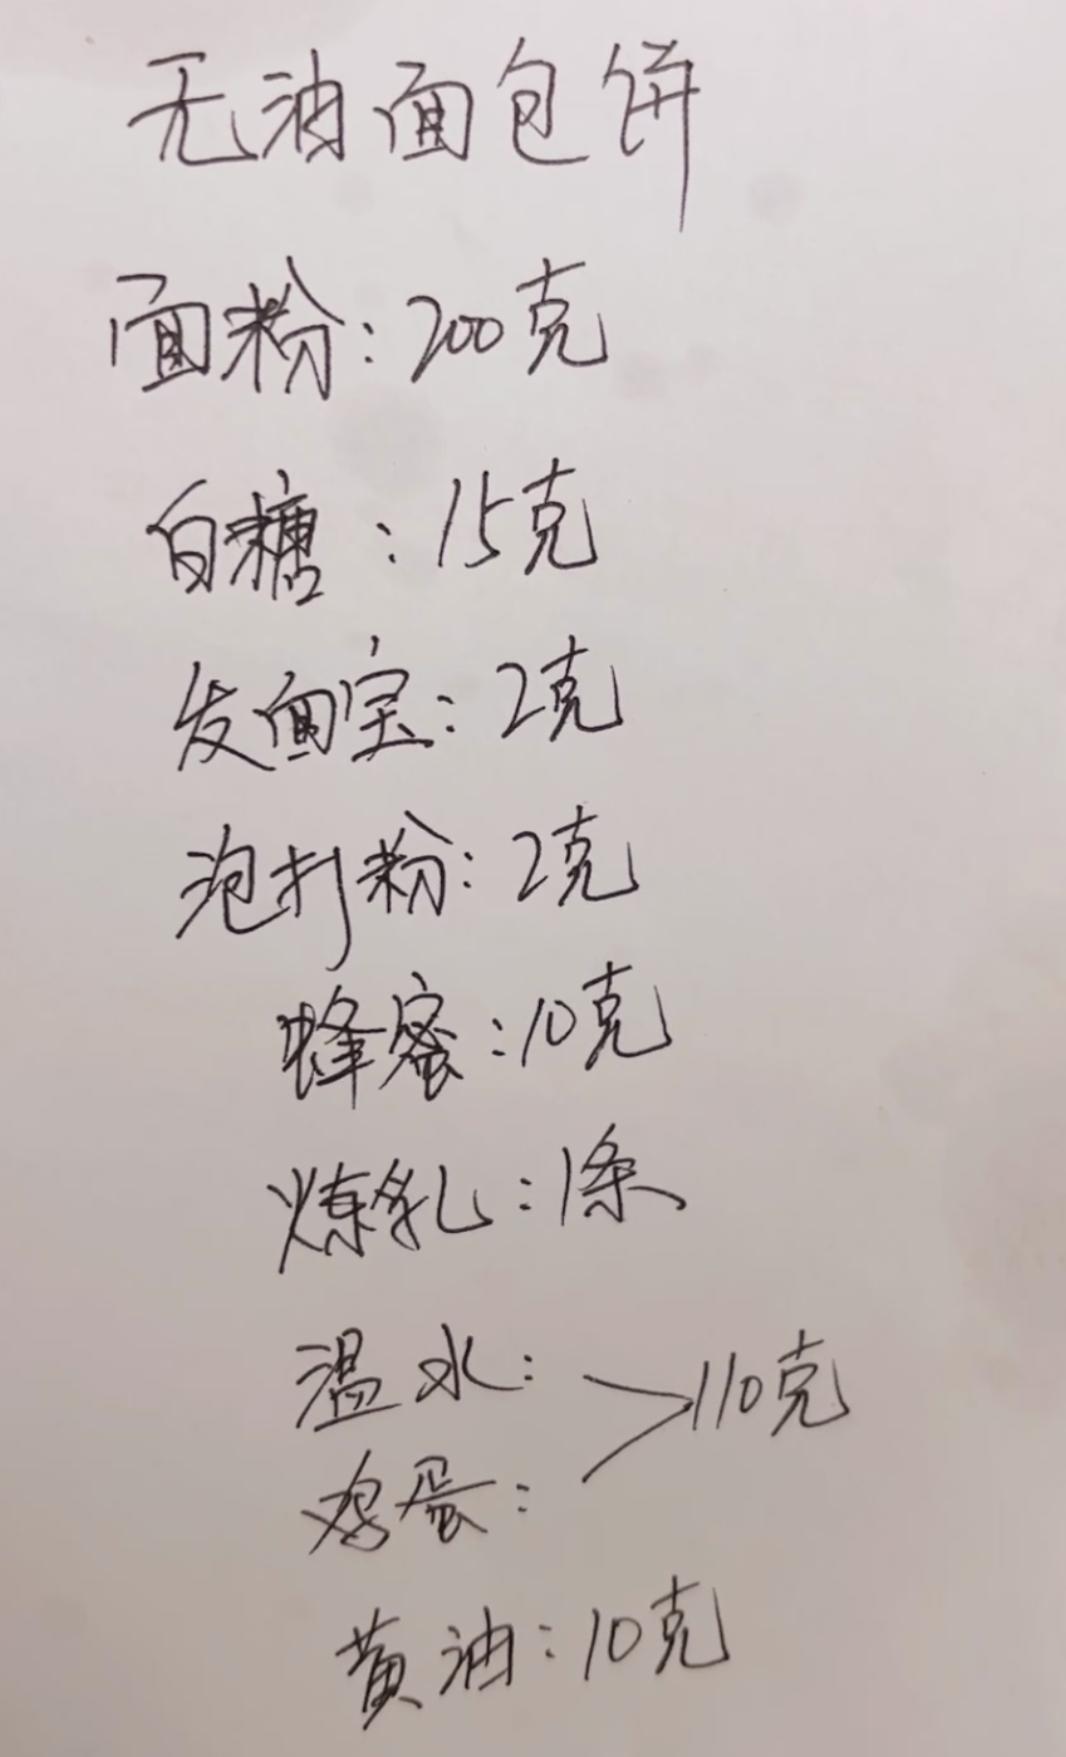 无油面包饼
面粉：200克
白糖：15克
发面宝：2克
泡打粉：2克
蜂蜜：10克
炼乳：1条
温水：
110克
鸡蛋：
黄油：10克